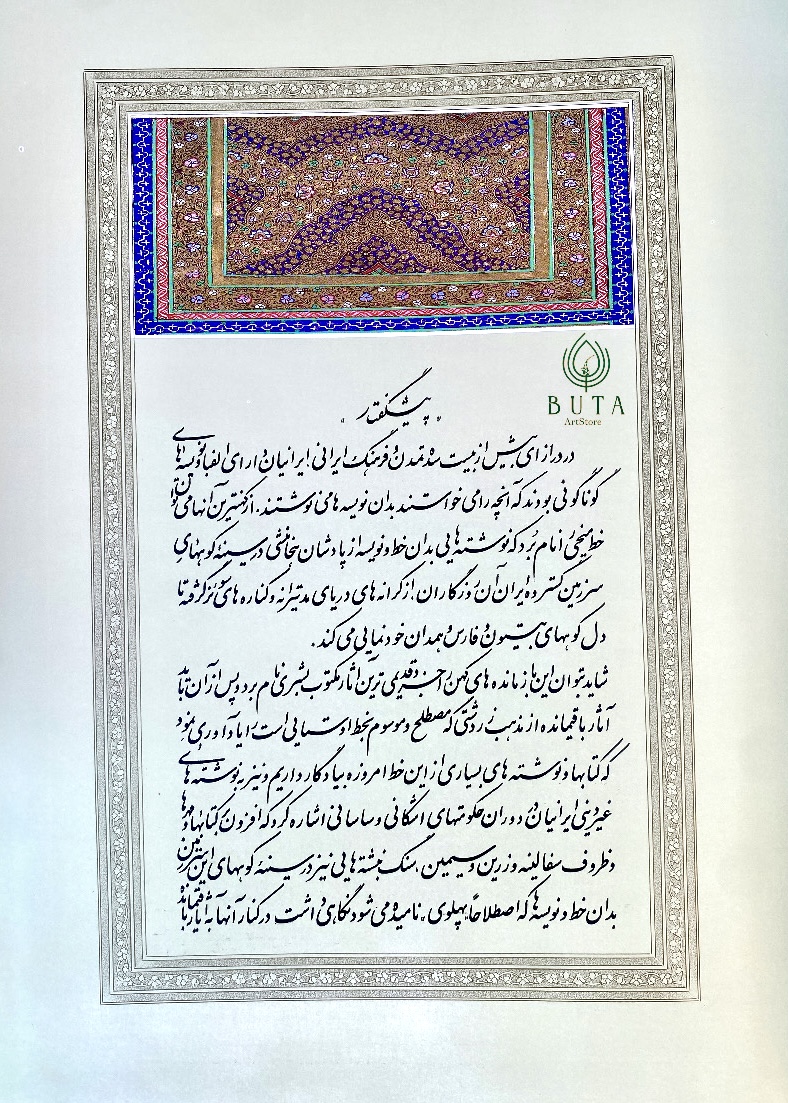 BUTA
ArtStore
"پیشگفتار"
در درازای بیش از بیست سده تمدن و فرهنگ ایرانی ایرانیان دارای الفبا و نویسه‌های
گوناگونی بودند که آنچه را می خواستند بدان نویسه ها می نوشتند. از کهنترین آنها می توان
خط میخی را نام برد که نوشته هایی بدان خط و نویسه از پادشاهان هخامنشی در سینهٔ کوههای
سرزمین گسترده ایران آن روزگاران از کرانه های دریای مدیترانه و کناره های گرفته تا
دل کوههای بیستون و فارس و همدان خودنمایی می کند.
شاید بتوان این بازمانده های کهن را جزء قدیمی ترین آثار مکتوب بشری نام برد و پس از آن باید
آثار باقیمانده از مذهب زردشتی که مصطلح و موسوم بخط اوستایی است را یادآوری نمود
که کتابها و نوشته های بسیاری از این خط امروزه بیادگار داریم و نیز به نوشته های
غیردینی ایرانیان در دوران حکومتهای اشکانی و ساسانی اشاره کرد که افزون کتابها و مهرها
و ظروف سفالینه و زرین و سیمین، سنگ نبشته هایی نیز در سینهٔ کوههای این سرزمین
بدان خط و نویسه ها که اصطلاحاً "پهلوی" نامیده می شود نگاهی داشت در کنار آنها به آثار باقیمانده